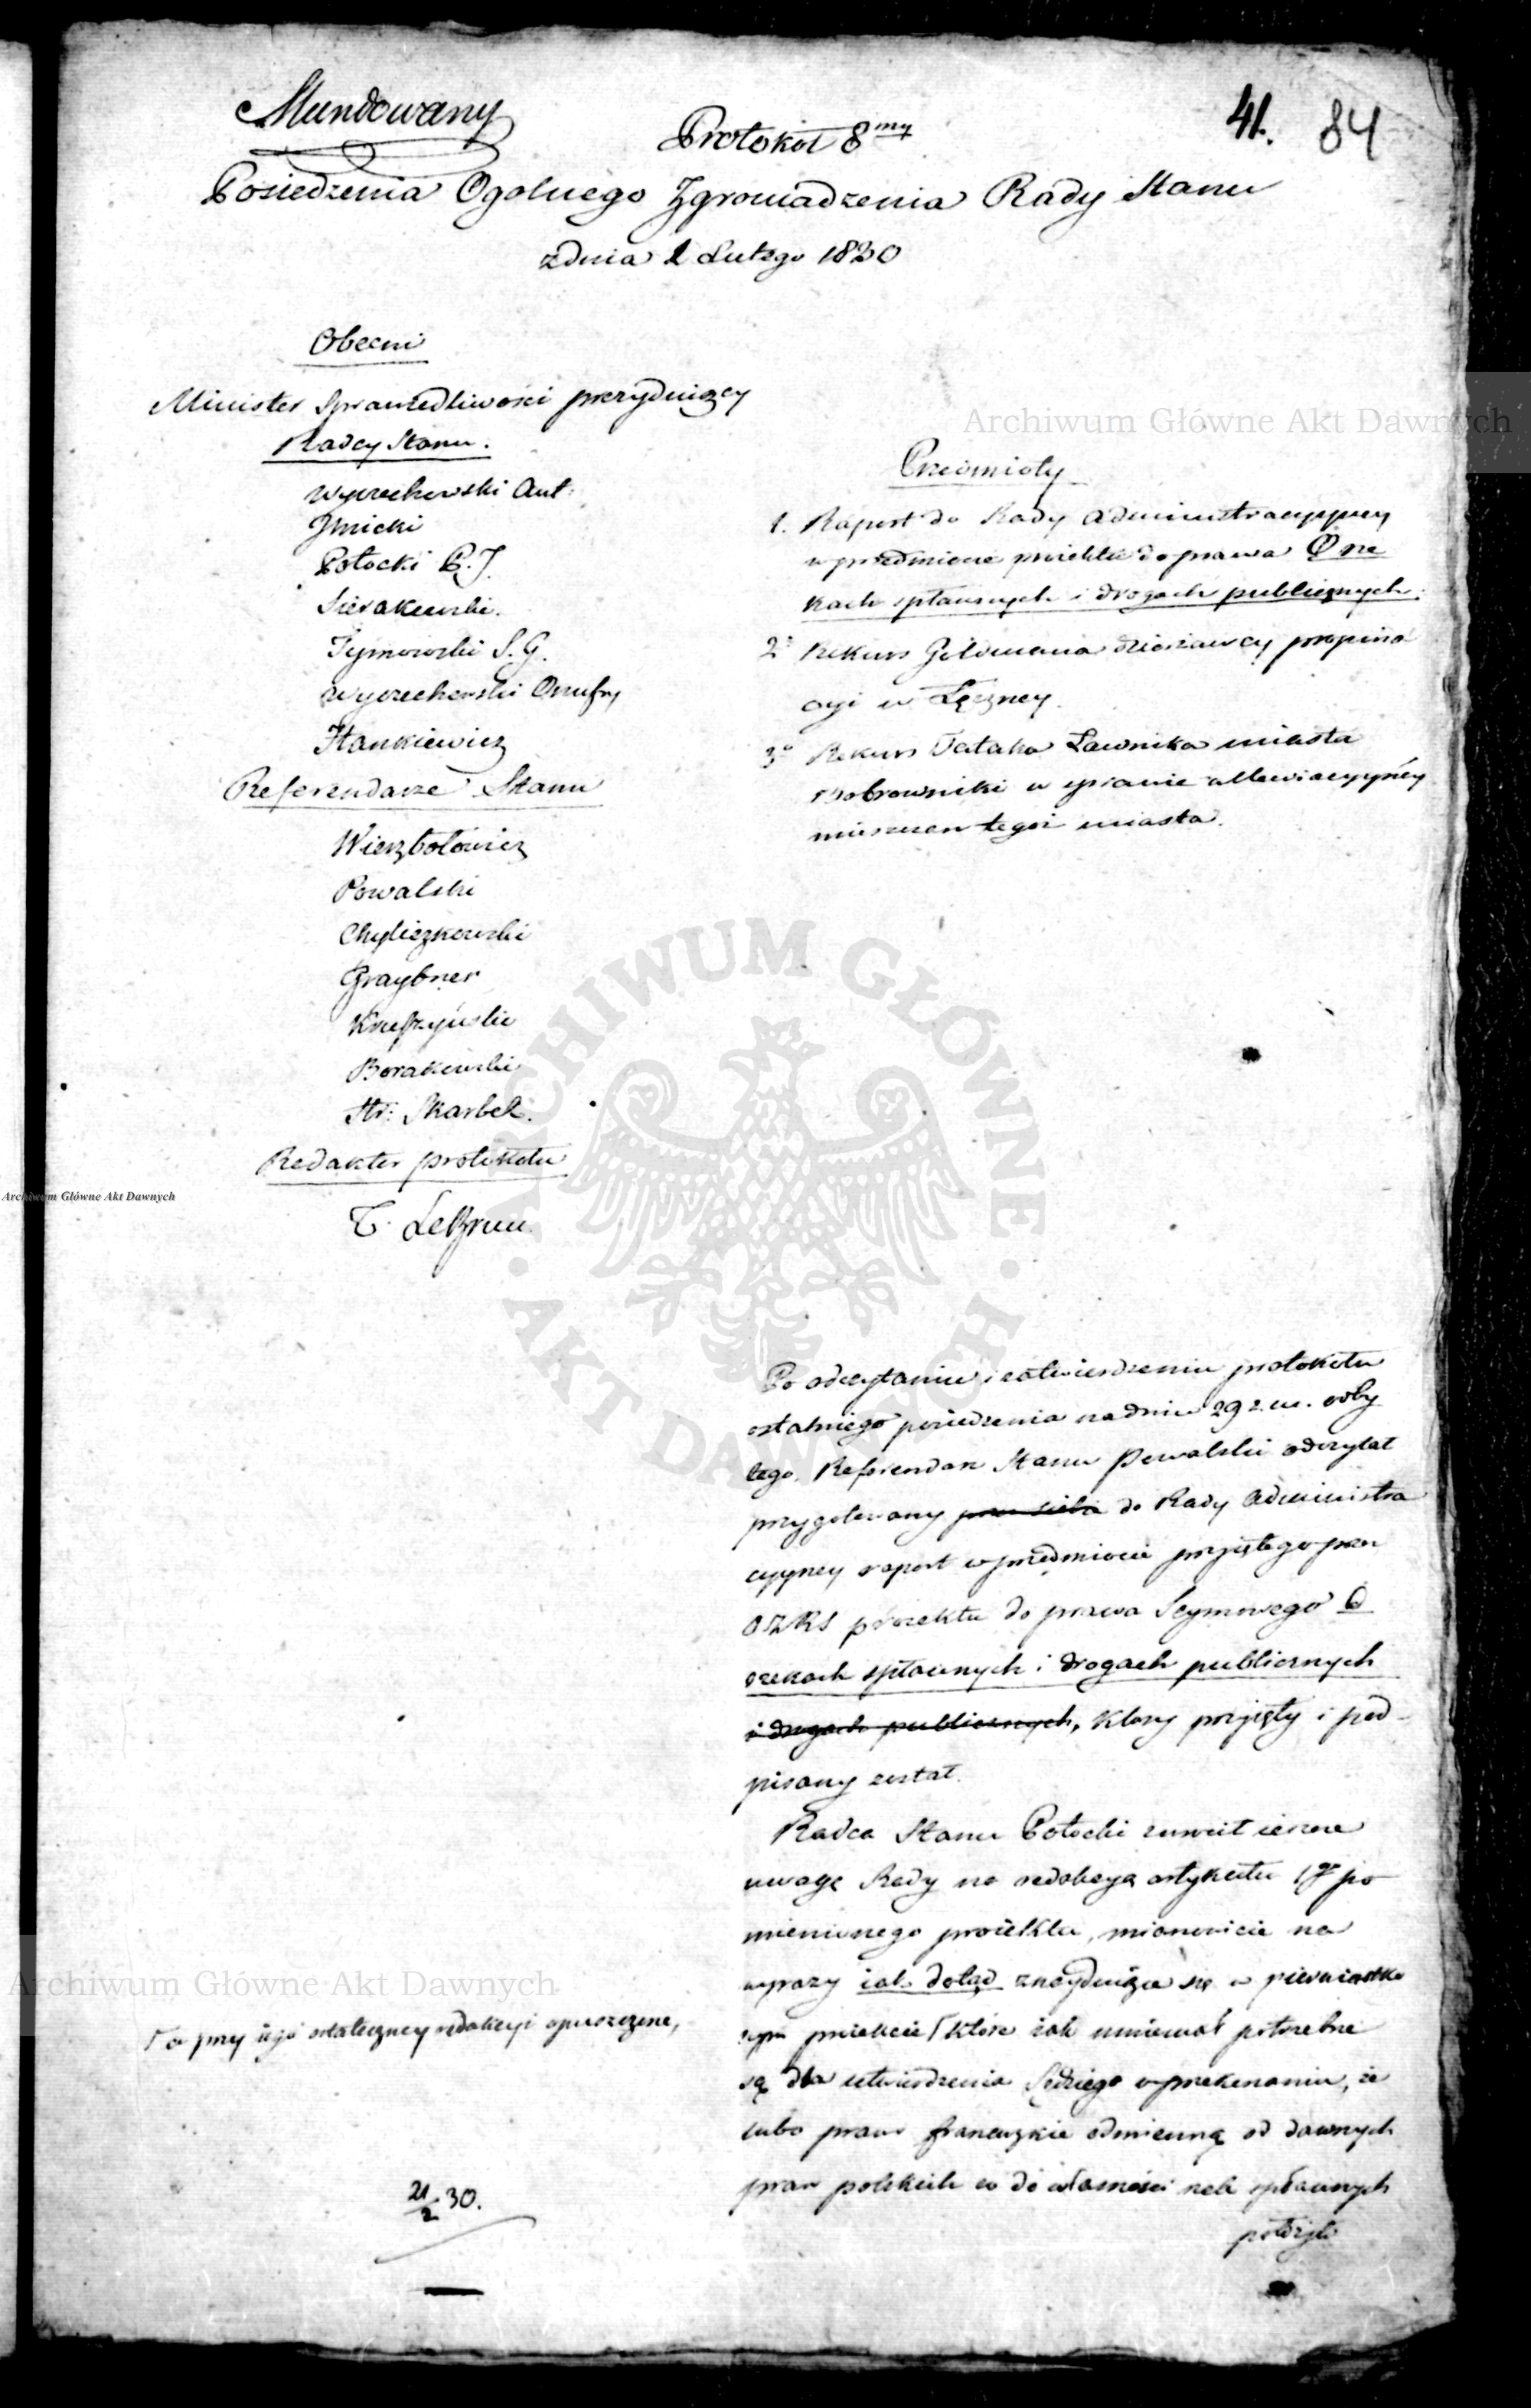 Mundowany
41. 84
Protokoł 8my
Posiedzenia Ogolnego Zgromadzenia Rady Stanu
z dnia 2 Lutego 1830
Obecni
Minister Sprawiedliwości prezyduiący
Radcy Stanu.
Wyczechowski Ant:
Potocki P. J.
Sierakowski.
Tymowski S. G.
Wyczechowski Onufry
Stankiewicz
Referendarze Stanu
Wierzbołowicz
Powalski
Chyliczkowski
Graybner
Kruszyński
Borakowski
Hr: Skarbek.
Redaktor protokołu
T. LeBrun.
Przedmioty
1. Raport do Rady Administracyyney
w przedmiocie proiektu do prawa O rze
kach spławnych i drogach publicznych.
2o Rekurs Goldmana dzierżawcy propina
cyi w Łęczney.
3o Rekurs Ławnika miasta
Dobrowniki w sprawie
mieszczan tegoż miasta.
Po odczytaniu i zatwierdzeniu protokołu
ostatniego posiedzenia na dniu 29 z. m. odby
tego, Referendarz Stanu Powalski odczytał
przygotowany przez siebie do Rady Administra
cyyney raport w przedmiocie przyiętego przez
OZRS proiektu do prawa Seymowego O
rzekach spławnych i drogach publicznych
i drogach publicznych, który przyięty i pod-
pisany został.
Radca Stanu Potocki zwrócił ieszcze
uwagę Rady na redakcyą artykułu 1go po
mienionego proiektu, mianowicie na
wyrazy iak dotąd znayduiące się w pierwiastko
wym proiekcie które iak mniemał potrzebne
są dla utwierdzenia Sędziego w przekonaniu, że
lubo prawo francuzkie odmienną od dawnych
praw polskich co do własności rzek spławnych
położyło
a przy iego ostateczney redakcyi opuszczone,
21/2 30.
Archiwum Główne Akt Dawnych
Archiwum Główne Akt Dawnych
Archiwum Główne Akt Dawnych
ARCHIWUM GŁÓWNE
AKT DAWNYCH